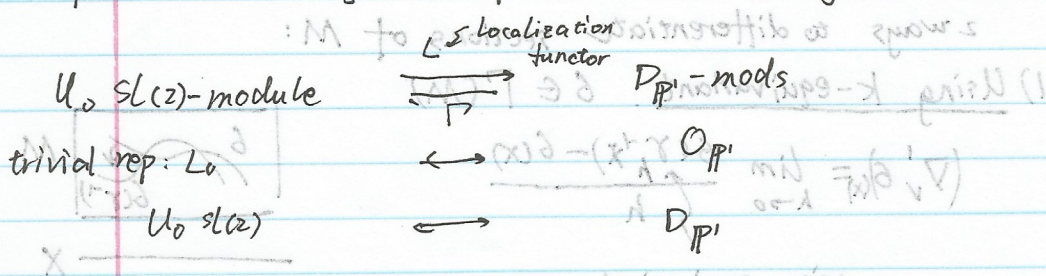 L Localization
functor
U₀ sl(2)-module ⇄ D_ℙ¹-mods
Γ
trivial rep: L₀ ↔ O_ℙ¹
U₀ sl(2) ↔ D_ℙ¹